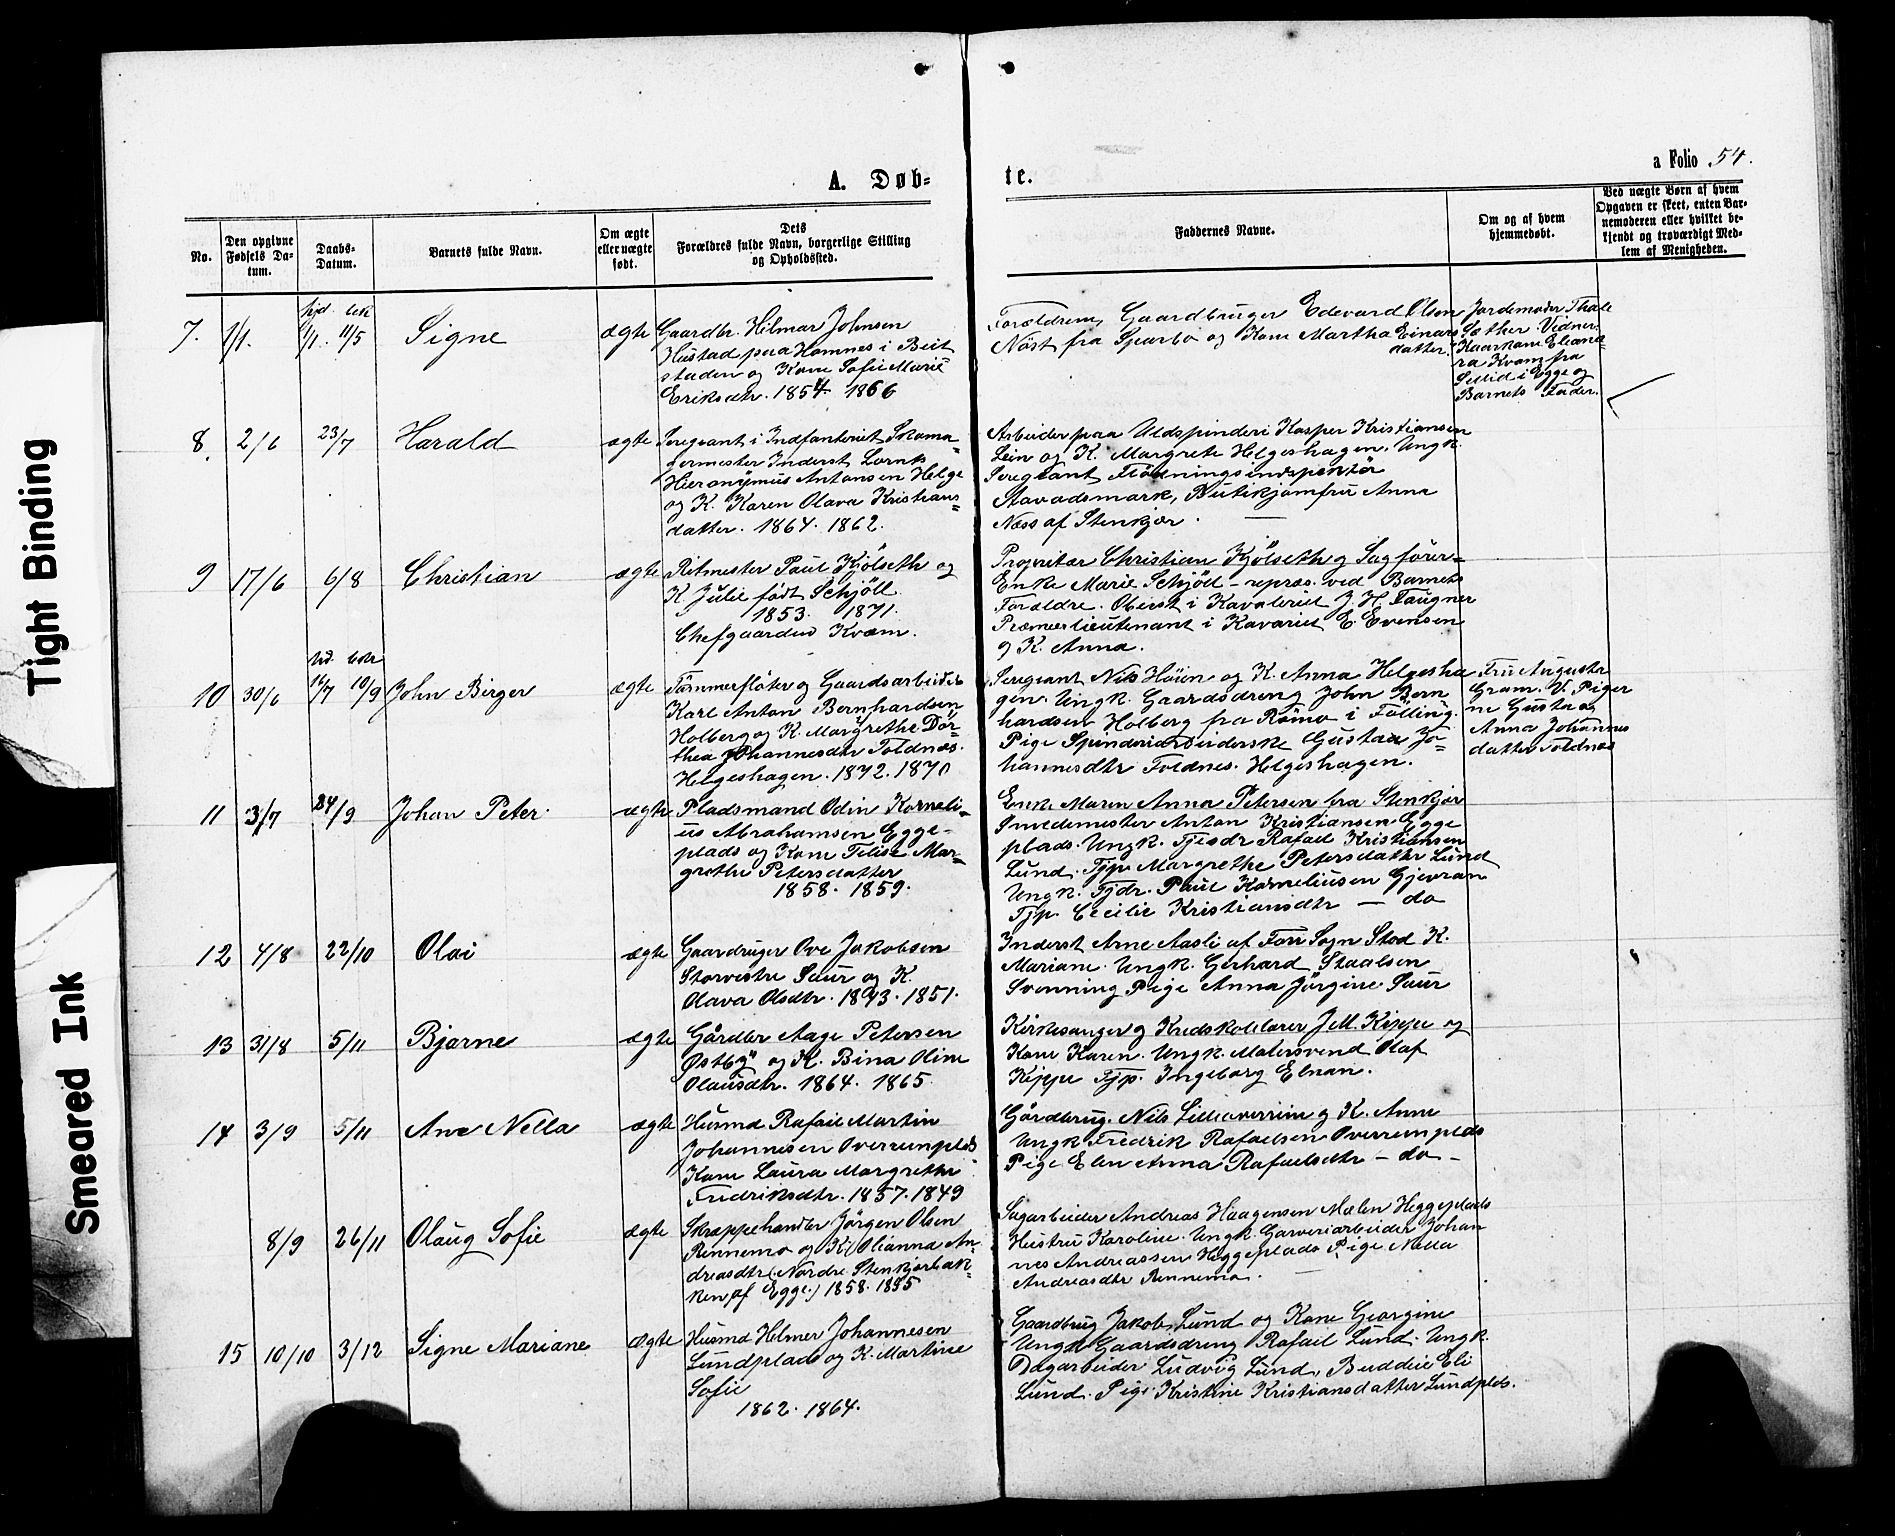 Tight Binding
Smeared Ink
A. Døb-
te.
a Folio 54.
No.
Den opgivne Fødsels Da-
tum.
Daabs-
Datum.
Barnets fulde Navn.
Om ægte
eller uægte
født.
Dets
Forældres fulde Navn, borgerlige Stilling
og Opholdssted.
Faddernes Navne.
Om og af hvem
hjemmedøbt.
Ved uægte Børn af hvem
Opgaven er skeet, enten Bar-
nemoderen eller hvilket be-
kjendt og troværdigt Med-
lem af Menigheden.
7. 1/1. hjd. bek 1/1. 11/5 Signe ægte
Gaardbr. Hilmar Johnsen
Hustad paa Homnes i Beit
staden og Kone Sofie Marie
Eriksdtr. 1854 1866
Forældrene, Gaardbruger Edevard Olsen
Nöst fra Sparbo og Kone Martha Einars
datter.
Jordemoder Thale
Sæther. Vidner.
Kaarkone Eleano
ra Kvam fra
i Egge og
Barnets Fader.
8. 2/6 23/7 Harald ægte
Seregeant i Indfanteriet Skoma-
germester Inderst Lornts
Hieronymus Antonsen Helge
og K. Karen Olava Kristians-
datter. 1864. 1862.
Arbeider paa Uldspinderi Kasper Kristiansen
Lein og K. Margrete Helgeshagen. Ungk.
Seregeant Flödningsindspektör
Stavadsmark, Butikjomfru Anna
Næss af Stenkjær.
9 17/6 6/8 Christian ægte
Ritmester Paul Kjölseth og
K. Julie født Schjöll
1853. 1871.
Chefgaarden Kvam.
Proprietær Christian Kjölseth og Sagförer-
Enke Marie Schjöll - repræs. ved Barnets
Forældre. Oberst i Kavaleriet J. H. Faugner
Præmierlieutenant i Kavariet E. Evensen
og K. Anna.
10 30/6 hd. bekr 16/7 10/9 John Birger ægte
Tömmerflöter og Gaardsarbeider
Karl Anton Bernhardsen
Holberg og K. Margrethe Dor-
thea Johannesdtr Foldnæs.
Helgeshagen. 1872. 1870
Seregeant Nils Höien og K. Anna Helgesha
gen. Ungk. Gaardsdreng John Bern
hardsen Holberg fra Römo i Fölling.
Pige Spinderiarbeiderske Gustava Jo-
hannesdtr Foldnes. Helgeshagen.
Fru Auguster
Gram. V. Piger
ne Gusta og
Anna Johannes
datter Foldnæs
11 3/7 24/9 Johan Peter. ægte
Pladsmand Odin Korneli-
us Abrahamsen Egge-
plads og Kone Filise Mar-
grethe Petersdatter
1858. 1859.
Enke Maren Anna Petersen fra Stenkjær
Smedemester Anton Kristiansen Egge
plads. Ungk. Tjesdr Rafael Kristiansen
Lund. Tjp. Margrethe Petersdatter Lund
Ungk. Tjdr. Paul Korneliusen Gjevran
Tjp. Cecilie Kristiansdtr — do
12 4/8 22/10 Olai ægte
Gaardruger Ove Jakobsen
Storvestre Saur og K.
Olava Olsdtr. 1843. 1851.
Inderst Arne Aasli af For Sogn Stod K.
Mariane. Ungk. Gerhard Staalsen
Svenning Pige Anna Jörgine Saur
13 31/8 5/11 Bjarne ægte
Gårdbr Aage Petersen
Østby og K. Bina Oline
Olausdtr. 1864. 1865.
Kirkesanger og Kredskolelærer J. M. Kippe og
Kone Karen. Ungk. Malersvend Olaf
Kippe Tjp. Ingeborg Elnan.
14 3/9 5/11 Ane Nella ægte
Husmd Rafael Martin
Johannesen Overreinplds
Kone Laura Margrethe
Fredriksdtr. 1857. 1849
Gårdbrug. Nils Lilleoverrein og K. Anne
Ungk Fredrik Rafaelsen Overreinplds
Pige Elen Anna Rafaelsdtr - do -
8/9 26/11 Olaug Sofie ægte
Skræppehandler Jörgen Olsen
Rennemo og K. Olianna An-
dreasdtr (Nordre Stenkjærbak-
ken af Egge.) 1858. 1855
Sagarbeider Andreas Haagensen Mælen Heggeplads
Hustru Karoline. Ungk. Garveriarbeider Johan
nes Andreassen Heggeplads Pige Nella
Andreasdtr Rennemo.
15 10/10 3/12 Signe Mariane Ægte
Husmd Helmer Johannesen
Lundplads og K. Martine
Sofie
1862. 1864.
Gaardbrug Jakob Lund og Kone Georgine
Ungk Gaardsdreng Rafael Lund. Ungk.
Dagarbeider Ludvig Lund, Buddeie Eli
Lund. Pige Kristine Kristiansdatter Lundplds.